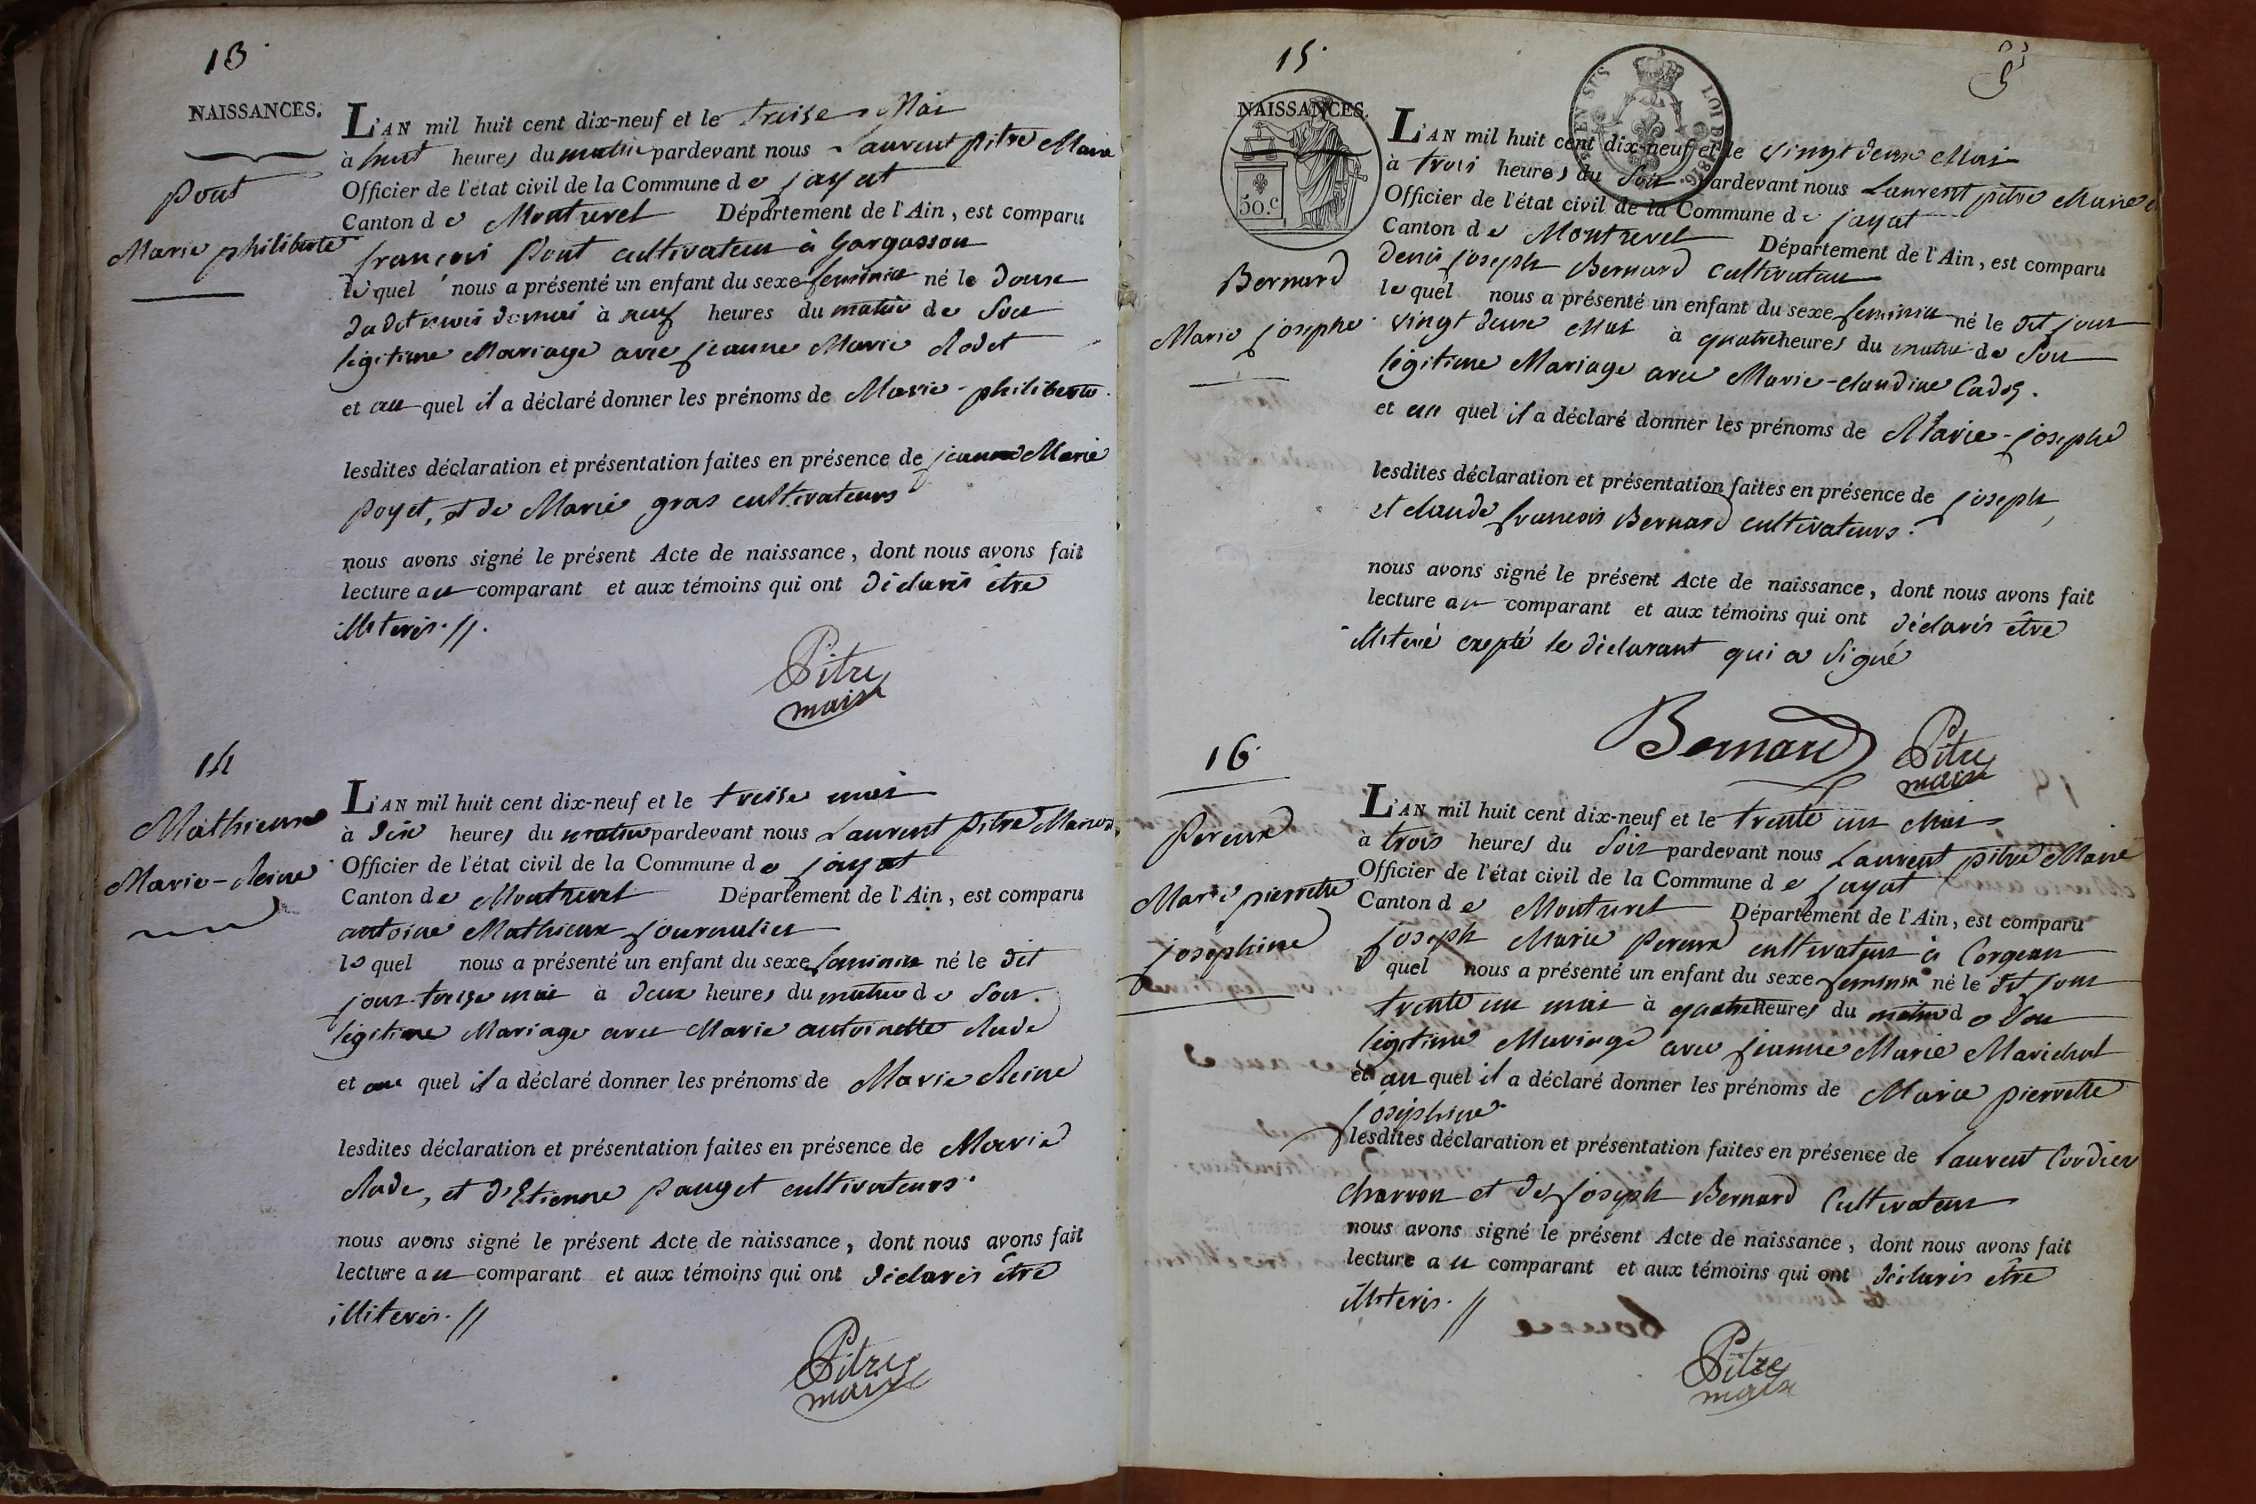 13.
NAISSANCES.
Pont
Marie philiberte
L'AN mil huit cent dix-neuf et le treise Mai
à huit heures du matin pardevant nous Laurent pitre Maire
Officier de l'état civil de la Commune de jayat
Canton de Montrevel Département de l'Ain, est comparu
françois Pont cultivateur à Gargasson
le quel nous a présenté un enfant du sexe feminin né le douse
du dit mois de mai à neuf heures du matin de Son
légitime Mariage avec jeanne Marie Rodet
et au quel il a déclaré donner les prénoms de Marie-philiberte.
lesdites déclaration et présentation faites en présence de jeanne Marie
poyet, et de Marie gras cultivateurs
nous avons signé le présent Acte de naissance, dont nous avons fait
lecture au comparant et aux témoins qui ont déclarés être
illiterés. //.
Pitre
maire
14
Mathieux
Marie-Reine
L'AN mil huit cent dix-neuf et le treise mai
à dix heures du matin pardevant nous Laurent pitre Maire
Officier de l'état civil de la Commune de jayat
Canton de Montrevel Département de l'Ain, est comparu
antoine Mathieux journalier
le quel nous a présenté un enfant du sexe feminin né le dit
jour treise mai à deux heures du matin de Son
légitime Mariage avec Marie antoinette Rude
et au quel il a déclaré donner les prénoms de Marie Reine
lesdites déclaration et présentation faites en présence de Marie
Rude, et d'Etienne pauget cultivateurs.
nous avons signé le présent Acte de naissance, dont nous avons fait
lecture au comparant et aux témoins qui ont déclarés être
illiterés. //
Pitre
maire
15.
NAISSANCES.
50.c
LOI DE 1816.
Bernard
Marie josephe
L'AN mil huit cent dix-neuf et le vingt deux Mai
à trois heures du Soir pardevant nous Laurent pitre Maire
Officier de l'état civil de la Commune de jayat
Canton de Montrevel Département de l'Ain, est comparu
denis joseph Bernard cultivateur
le quel nous a présenté un enfant du sexe feminin né le dit jour
vingt deux Mai à quatre heures du matin de Son
légitime Mariage avec Marie-claudine Cadoz.
et au quel il a déclaré donner les prénoms de Marie-josephe
lesdites déclaration et présentation faites en présence de joseph,
et claude françois Bernard cultivateurs.
nous avons signé le présent Acte de naissance, dont nous avons fait
lecture au comparant et aux témoins qui ont déclarés être
illiteré expté le déclarant qui a signé
Bernard Pitre
maire
16.
Pereux
Marie pierrette
josephine
L'AN mil huit cent dix-neuf et le trente un Mai
à trois heures du Soir pardevant nous Laurent pitre Maire
Officier de l'état civil de la Commune de jayat
Canton de Montrevel Département de l'Ain, est comparu
joseph Marie Pereux cultivateur à Corgeau
quel nous a présenté un enfant du sexe feminin né le dit jour
trente un mai à quatre heures du matin de Son
légitime Mariage avec jeanne Marie Marichal
et au quel il a déclaré donner les prénoms de Marie pierrette
josephine.
lesdites déclaration et présentation faites en présence de Laurent Cordier
charron et de joseph Bernard Cultivateur
nous avons signé le présent Acte de naissance, dont nous avons fait
lecture au comparant et aux témoins qui ont déclarés être
illiterés. //
Pitre
maire